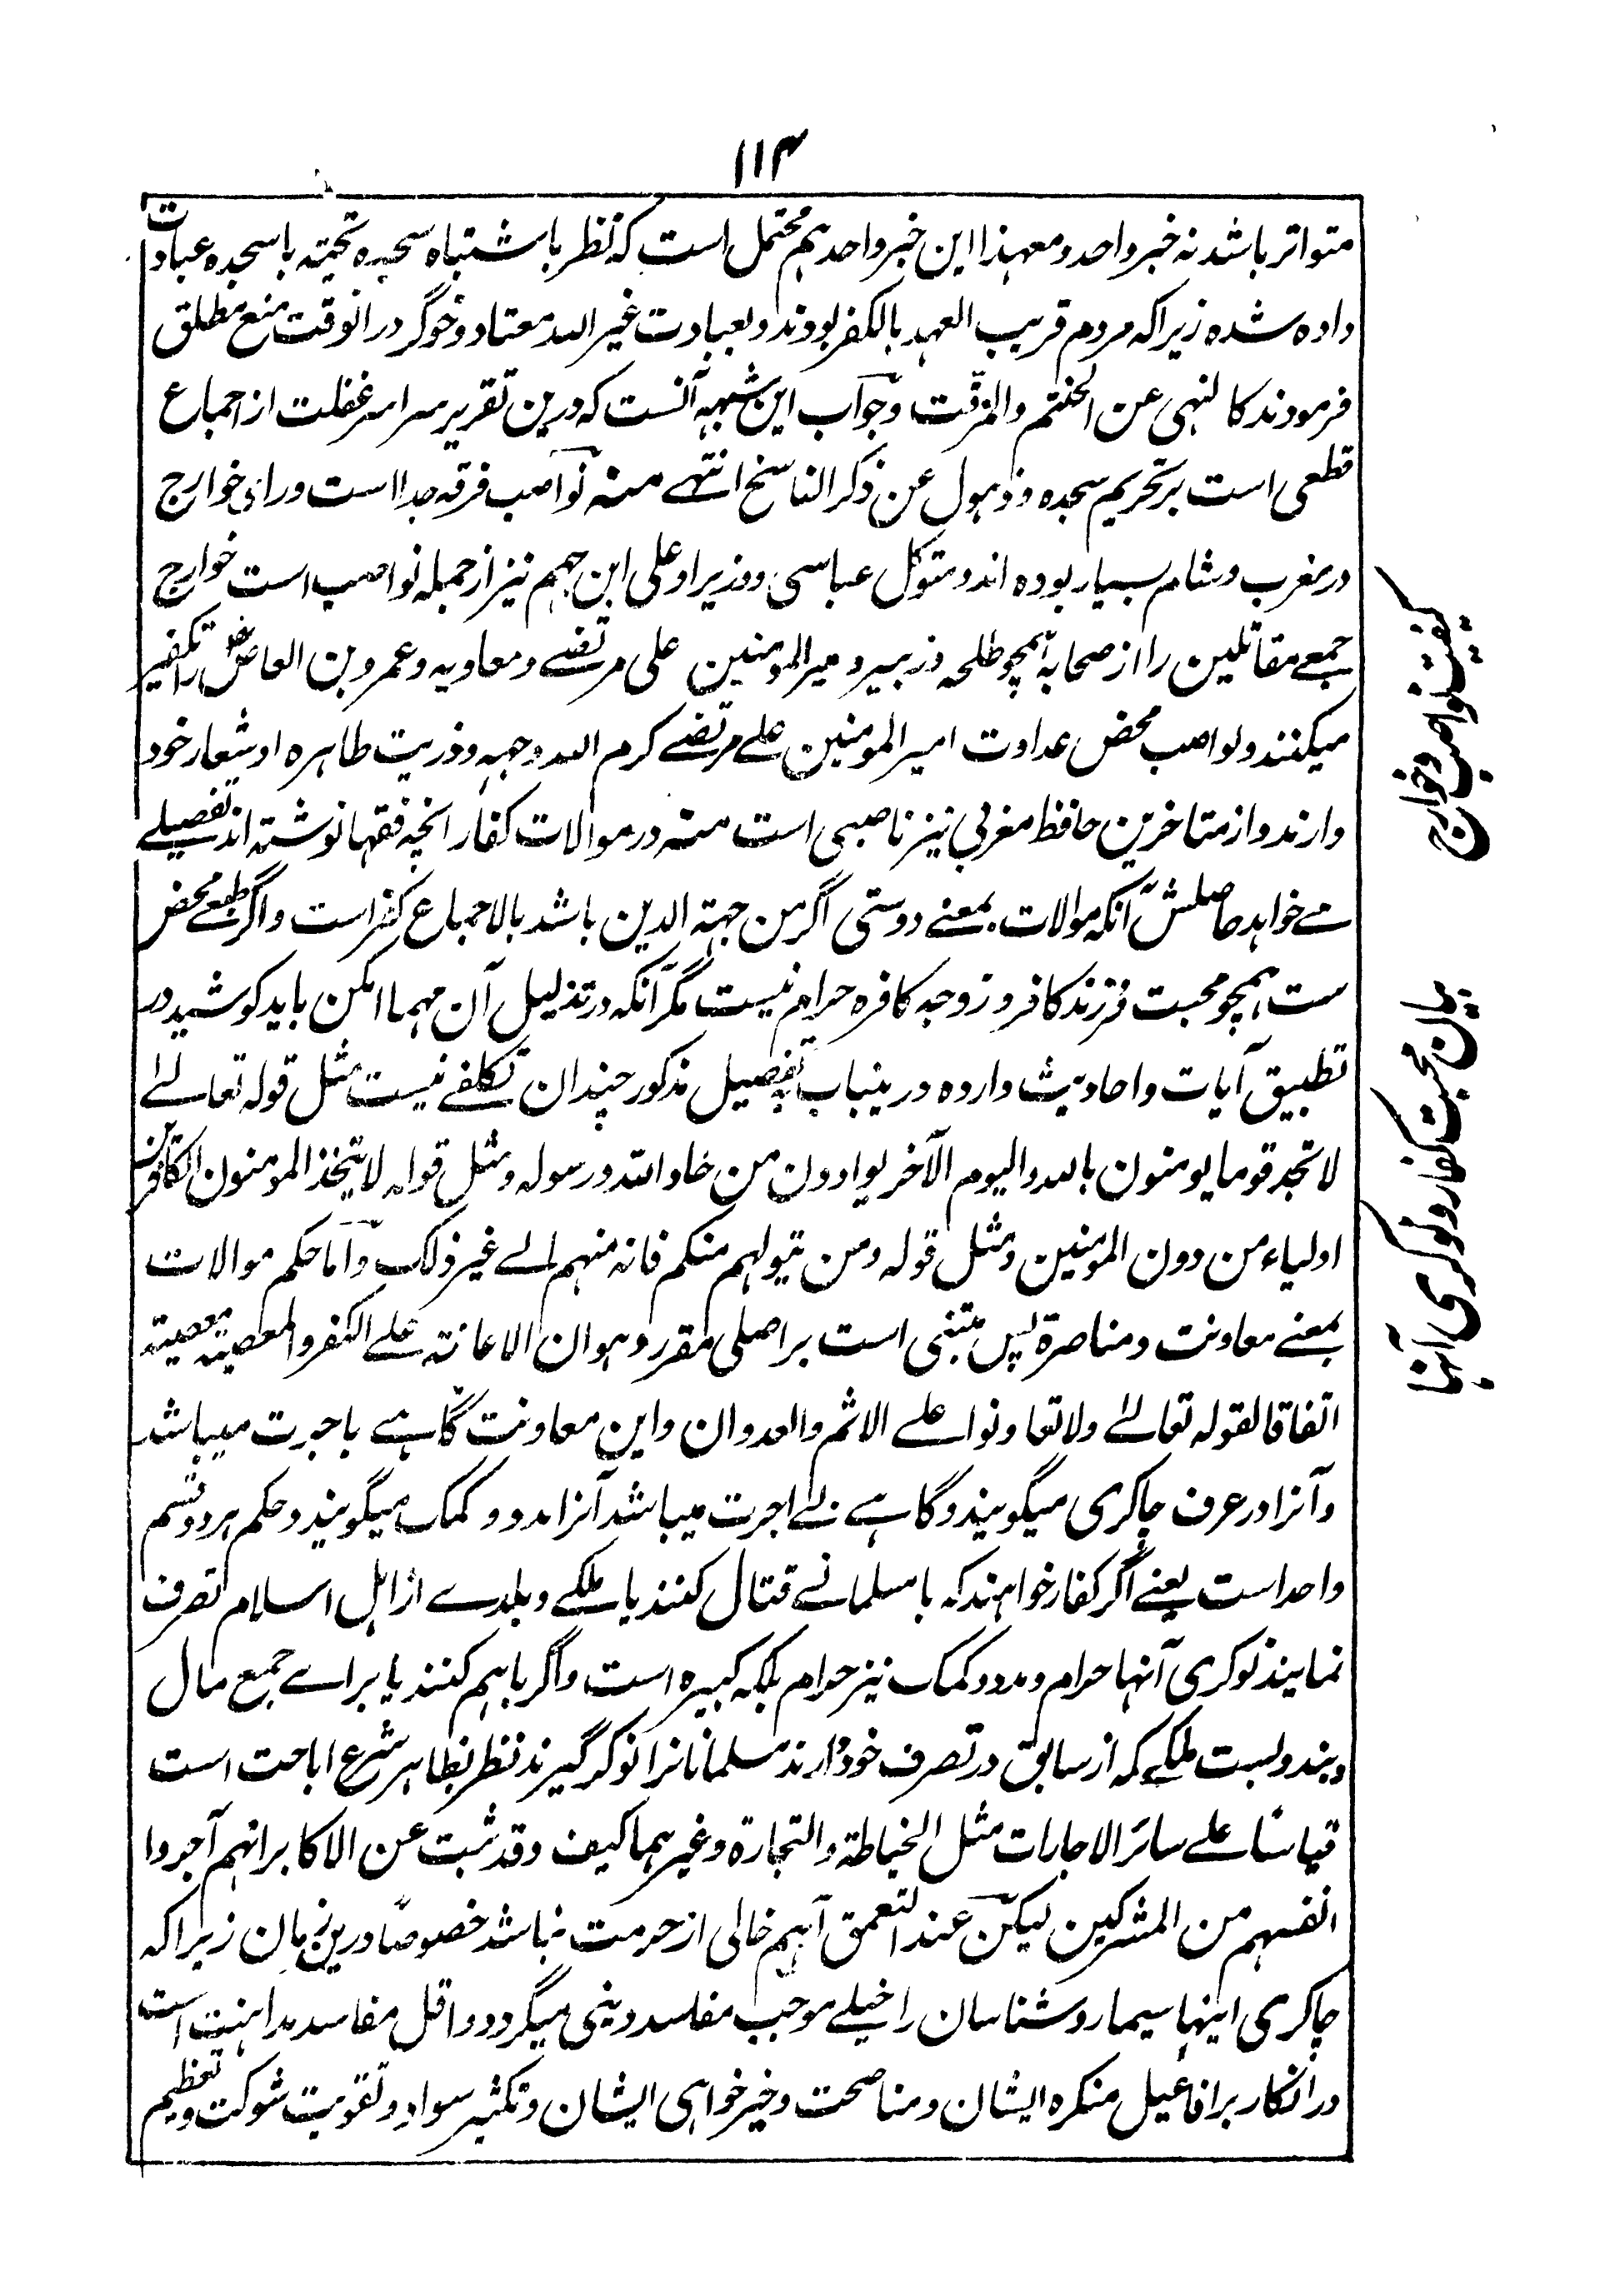 ۱۱۴
متواتر باشد نہ خبر واحد و معہذا این خبر واحد ہم محتمل است کہ نظر باشتباہ سجدہ تحیتہ با سجدہ عبادات
دادہ شدہ زیراکہ مردم قریب العہد بالکفر بودند و بعبادت غیر اللہ معتاد و خوگر درانوقت منع مطلق
فرمودند کالنہی عن الختم والمزفت و جواب این شبہہ آنست کہ درین تقریر سراسر غفلت از اجماع
قطعی است بر تحریم سجدہ و ذہول عن ذکر الناسخ انتہے منہ نواصب فرقہ جدا است ورای خوارج
در مغرب و شام بسیار بودہ اند و متوکل عباسی و وزیر او علی ابن جہم نیز از جملہ نواصب است خوارج
جمعے مقاتلین را از صحابہ ہمچو طلحہ و زبیر و میر المومنین علی مرتضے و معاویہ و عمرو بن العاص را تکفیر
میکنند و نواصب محض عداوت امیر المومنین علے مرتضے کرم اللہ وجہہ و ذریت طاہرہ او شعار خود
دارند و از متاخرین حافظ مغربی نیز ناصبی است منہ در موالات کفار انچہ فقہا نوشتہ اند تفصیلے
مے خواہد حاصلش آنکہ موالات بمعنے دوستی اگر من جہتہ الدین باشد بالاجماع کفر است و اگر طبعے محض
ست ہمچو محبت فرزند کافر و زوجہ کافرہ حرام نیست مگر آنکہ در تذلیل آن مہما امکن باید کوشید در
تطبیق آیات و احادیث واردہ درینباب بتفصیل مذکور چندان تکلفے نیست مثل قولہ تعالے
لا تجد قوما یومنون باللہ والیوم الآخر یوادون من حاد اللہ و رسولہ و مثل قولہ لا یتخذ المومنون الکافرین
اولیاء من دون المومنین و مثل قولہ و من یتولہم منکم فانہ منہم الے غیر ذلک و اما حکم موالات
بمعنے معاونت و مناصرۃ پس مبتنی است بر اصلی مقرر و ہو ان الاعانتہ علے الکفر والمعصیتہ معصیتہ
اتفاقا لقولہ تعالے ولا تعاونوا علے الاثم والعدوان و این معاونت گاہے باجرت میباشد
و آنرا در عرف چاکری میگویند و گاہے بے اجرت میباشد آنرا مدد و کمک میگویند و حکم ہر دو قسم
واحد است یعنے اگر کفار خواہند کہ با مسلمانے قتال کنند یا ملکے و بلدے از اہل اسلام تصرف
نمایند نوکری آنہا حرام و مدد و کمک نیز حرام بلکہ کبیرہ است و اگر باہم کنند یا براے جمع مال
و بندوبست ملکے کہ از سابق در تصرف خود دارند مسلمانانرا نوکر گیرند نظر بظاہر شرع اباحت است
قیاسا علے سائر الاجارات مثل الخیاطۃ والتجارۃ و غیرہما کیف وقد ثبت عن الاکابر انہم آجروا
انفسہم من المشرکین لیکن عند التعمق آہم خالی از حرمت نباشد خصوصًا درین زمان زیراکہ
چاکری اینہا سیما روشناسان را خیلے موجب مفاسد دینی میگردد و اقل مفاسد مداہنت است
در انکار بر افاعیل منکرہ ایشان و مناصحت و خیرخواہی ایشان و تکثیر سواد و تقویت شوکت و تعظیم
کیفیت نواصب و خوارج
بیان محبت کفار و نوکری آنہا